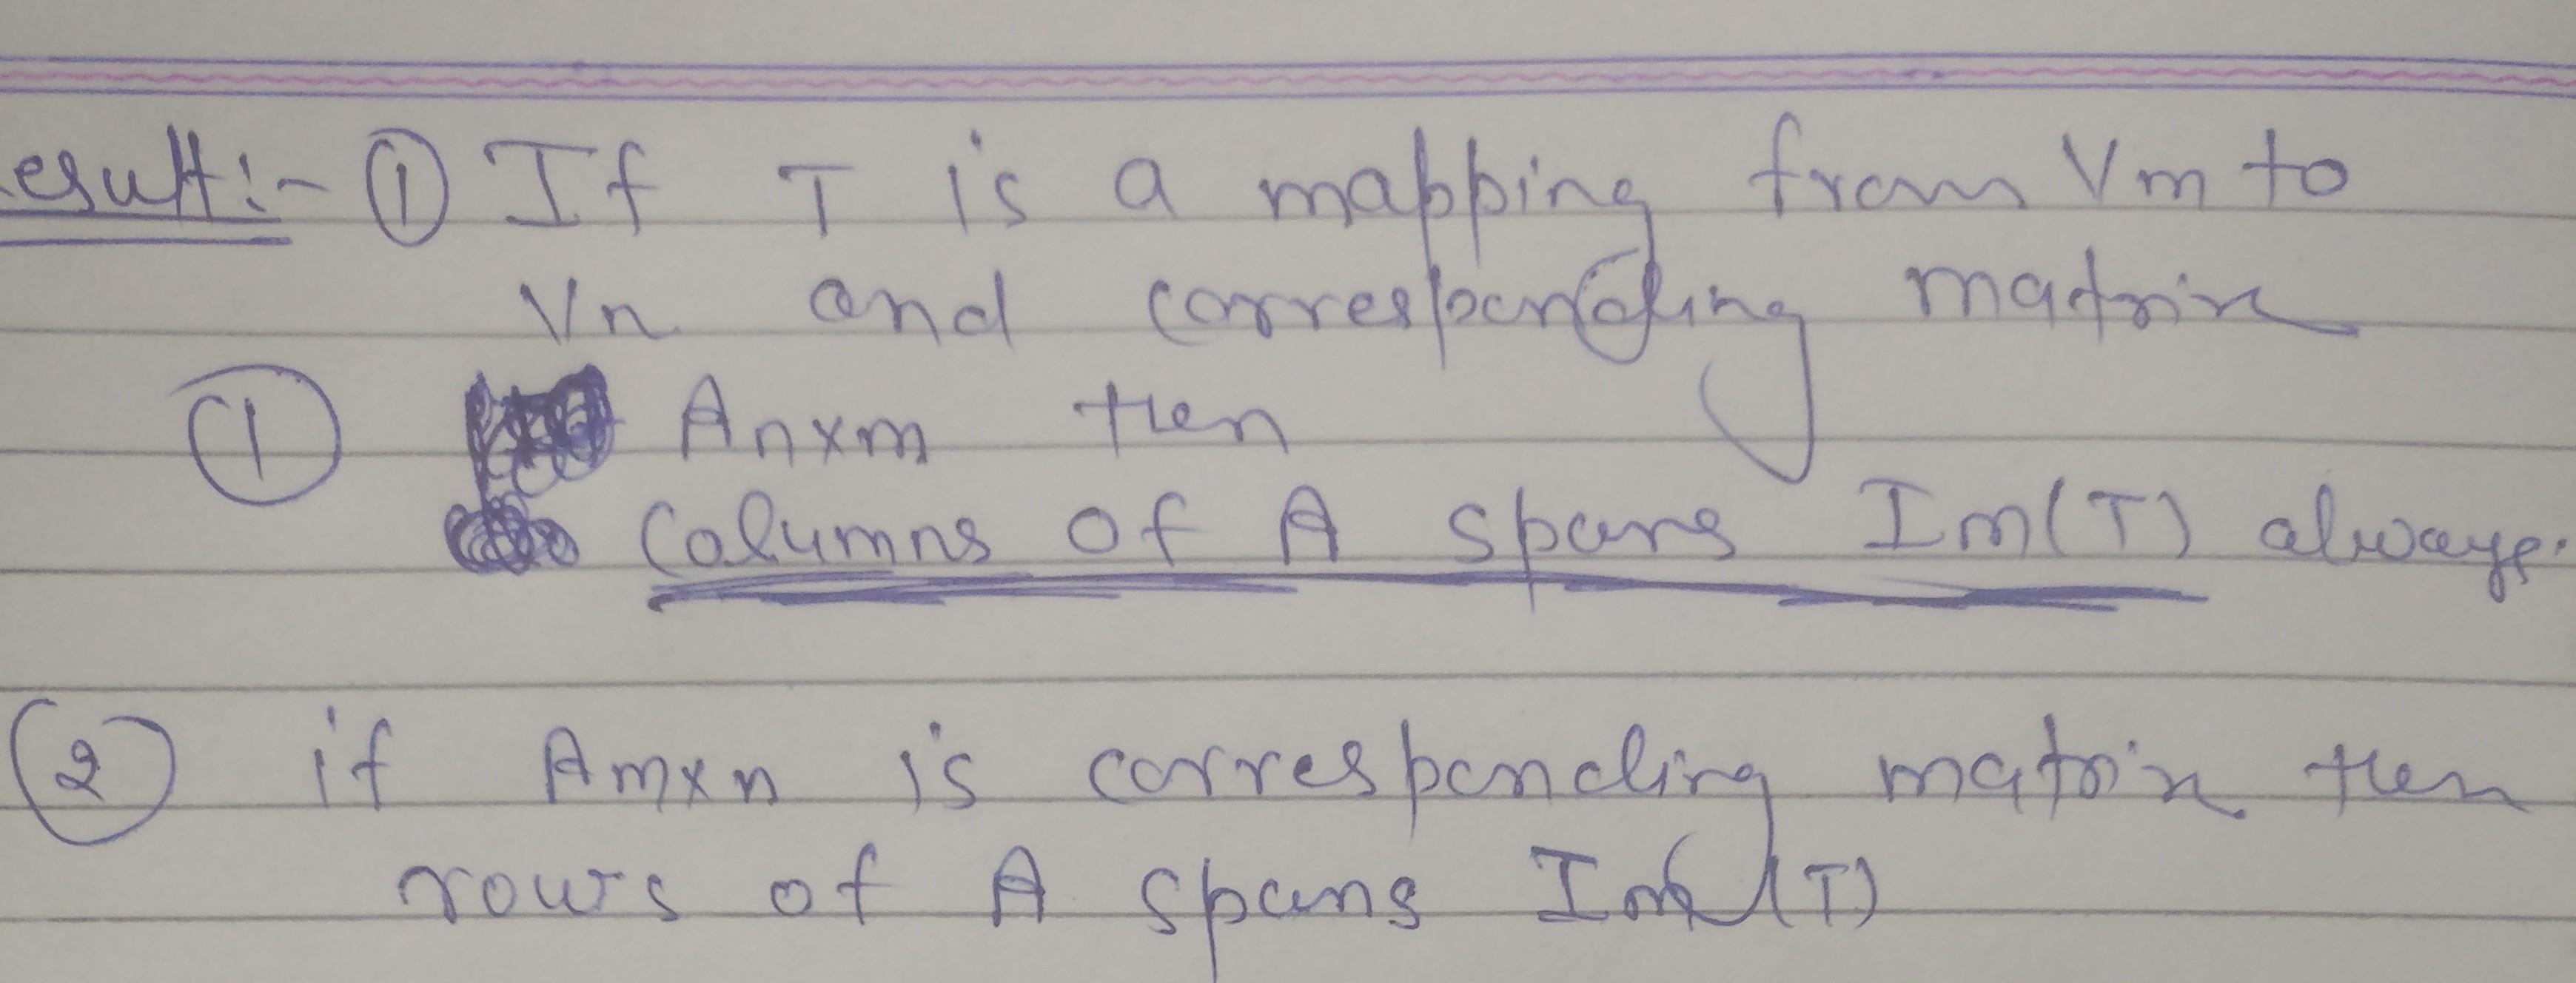 esult:- ① If T is a mapping from Vm to
Vn and corresponding matrix
① Anxm then
columns of A spans Im(T) always.
② if Amxn is corresponding matrix then
rows of A spans Im(T)